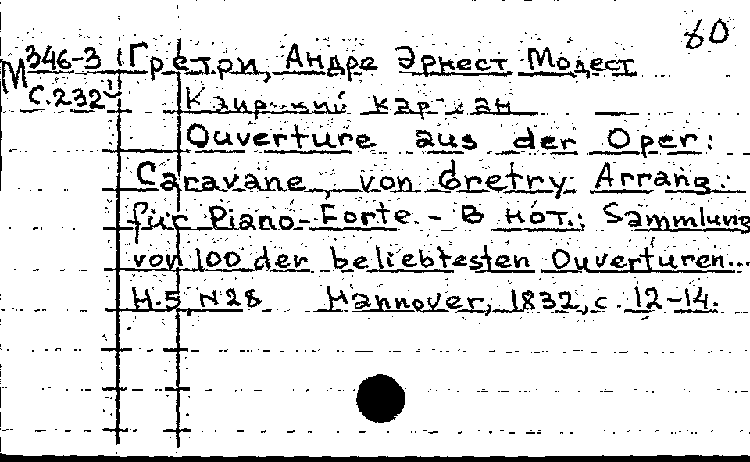 60
М 346-3 Гретри, Андре Эрнест Модест
С.232 Каирский караван
Ouverture aus der Oper:
Caravane, von Gretry. Arrang.
für Piano-Forte. - В нот.: Sammlung
von 100 der beliebtesten Ouverturen...
H.5, N28 Hannover, 1832, с. 12-14.